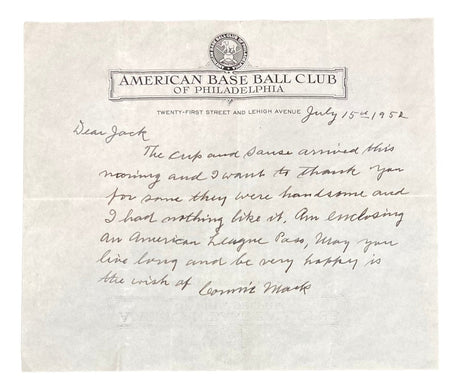 AMERICAN BASE BALL CLUB
OF PHILADELPHIA
TWENTY-FIRST STREET AND LEHIGH AVENUE
July 15th 1952
Dear Jack
The cup and sause arrived this
morning and I want to thank you
for same they were handsome and
I had nothing like it. Am enclosing
an American League Pass, May you
live long and be very happy is
the wish of Connie Mack